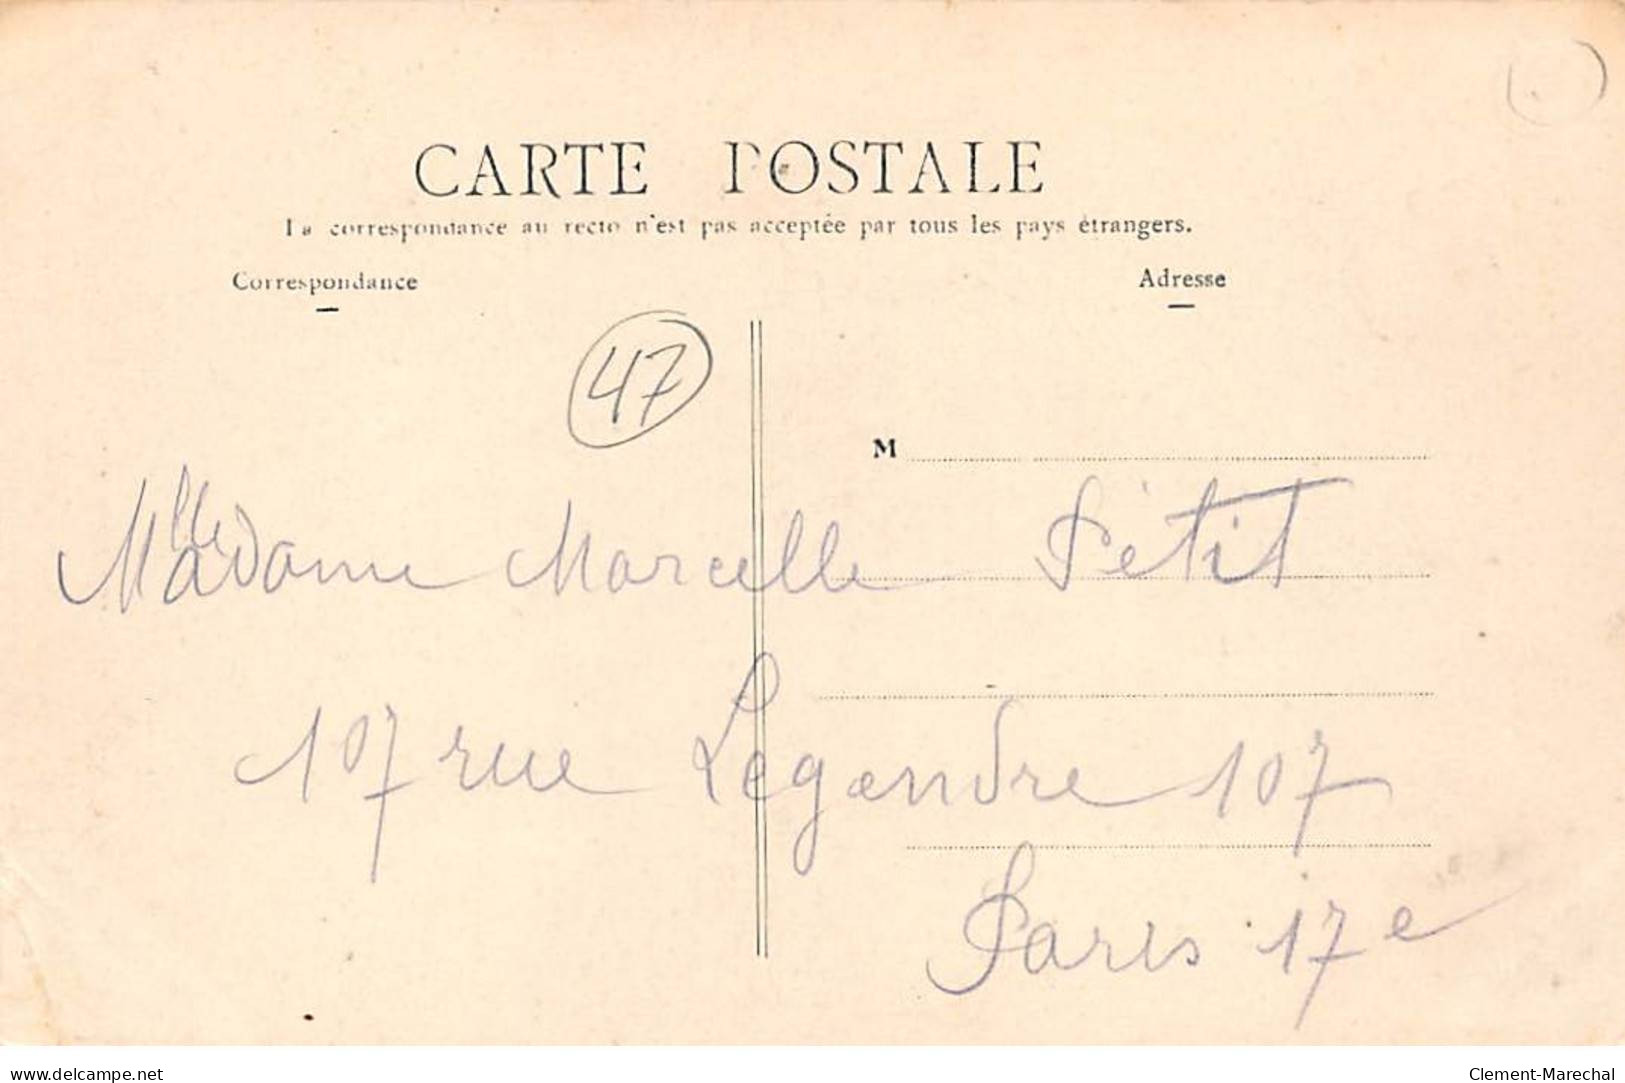 CARTE POSTALE
La correspondance au recto n'est pas acceptée par tous les pays étrangers.
Correspondance
Adresse
47
M
Madame Marcelle Petit
lle
107 rue Legendre 107
Paris 17e
www.delcampe.net
Clement-Marechal